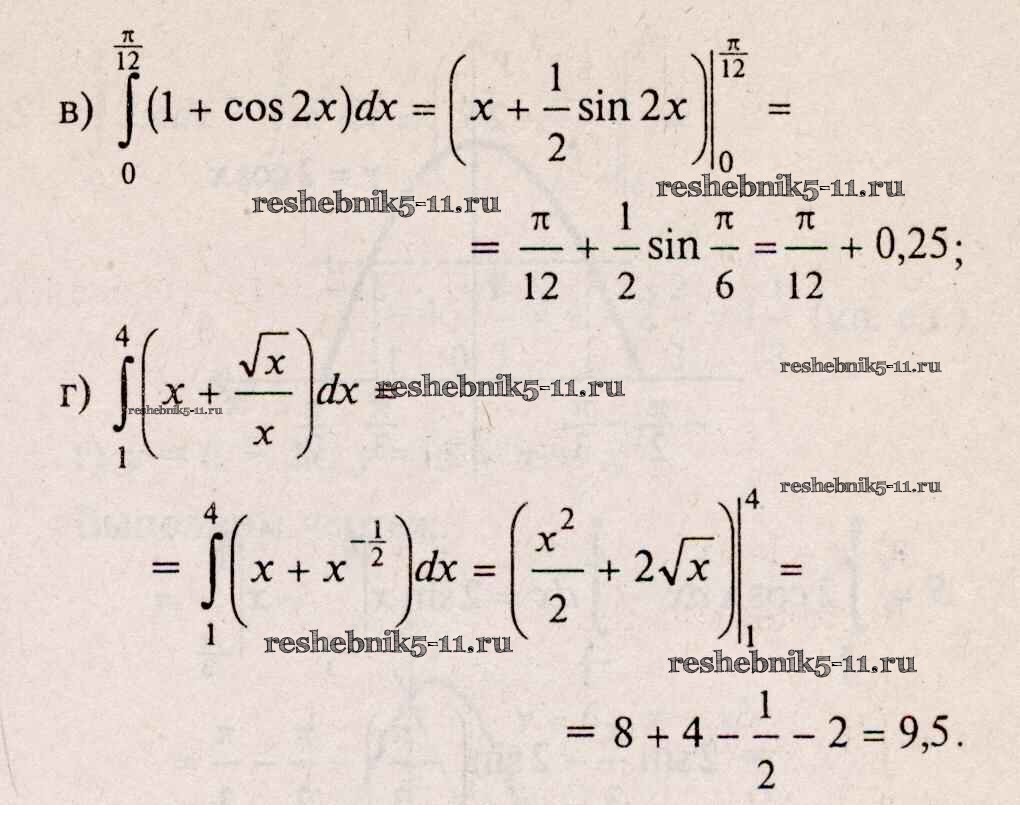 в) ∫₀^{π/12} (1 + cos 2x)dx = (x + 1/2 sin 2x)|₀^{π/12} =
reshebnik5-11.ru reshebnik5-11.ru
= π/12 + 1/2 sin π/6 = π/12 + 0,25;
reshebnik5-11.ru
г) ∫₁⁴ (x + √x/x)dx = reshebnik5-11.ru
reshebnik5-11.ru
reshebnik5-11.ru
= ∫₁⁴ (x + x^{-1/2})dx = (x²/2 + 2√x)|₁⁴ =
reshebnik5-11.ru reshebnik5-11.ru
= 8 + 4 − 1/2 − 2 = 9,5.